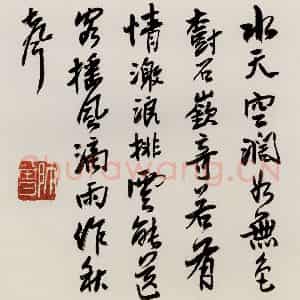 水天空濶如無色
樹石嶔奇若有
情激浪排雲能送
客搖風滴雨作秋
聲
Shufawang.CN